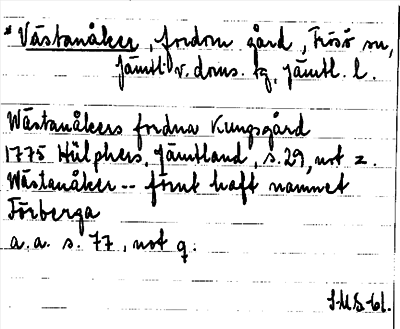 * Västanåker, fordom gård, Frösö sn,
Jämtl. v. doms. tg, Jämtl. l.
Wästanåkers fordna Kungsgård
1775 Hülphers, Jämtland, s. 29, not z.
Wästanåker -- förut haft namnet
Förberga
a.a. s. 77, not q.